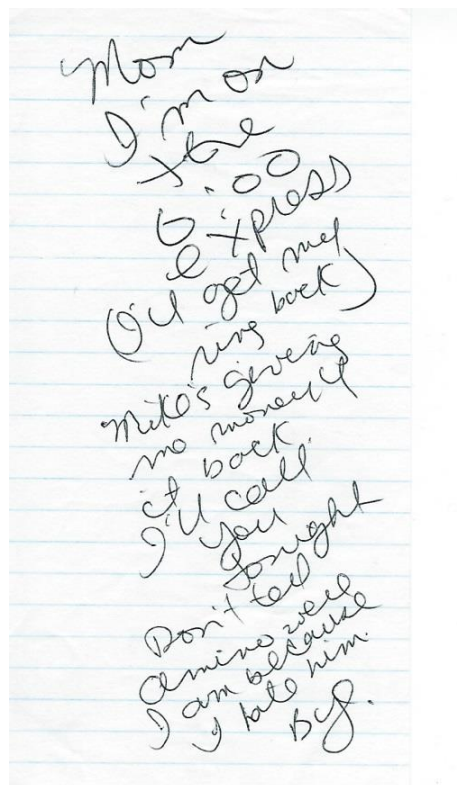 Mom
I'm on
the
6:00
express
(I'll get my
ring back)
Mike's giving
me money
it back
I'll call
you
tonight
Don't tell
were
I am because
I hate him.
Bye.